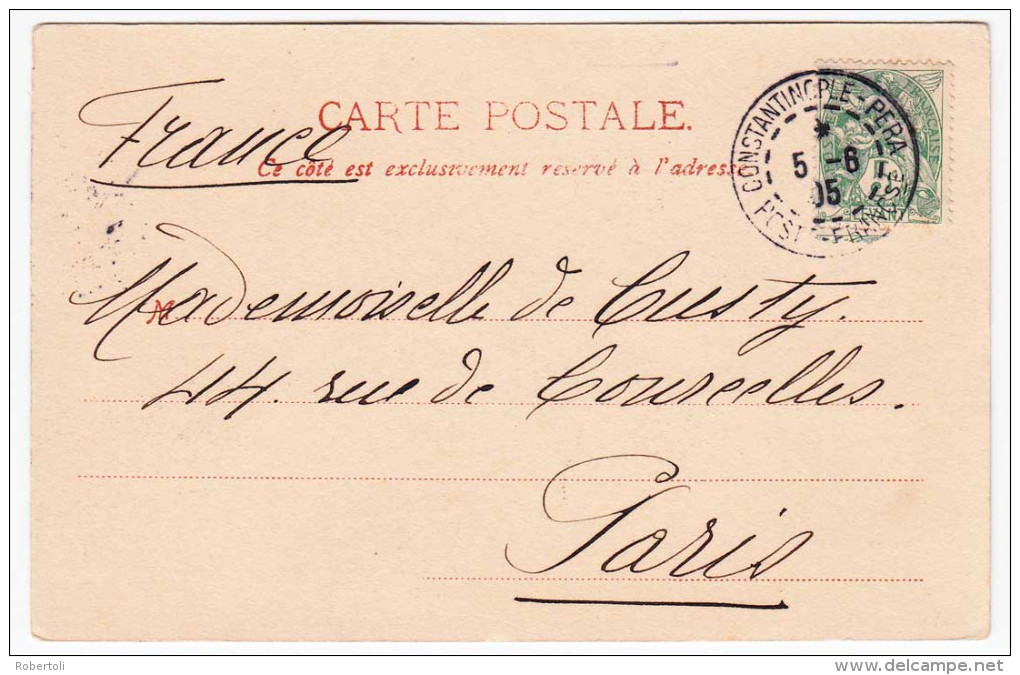 France
CARTE POSTALE.
Ce côté est exclusivement reservé à l'adresse
CONSTANTINOPLE-PERA
5 -6
05
POSTE FRANCSE
FRANÇAIS
5
M
Mademoiselle de Custy.
44 rue de Courcelles.
Paris
Robertoli
www.delcampe.net